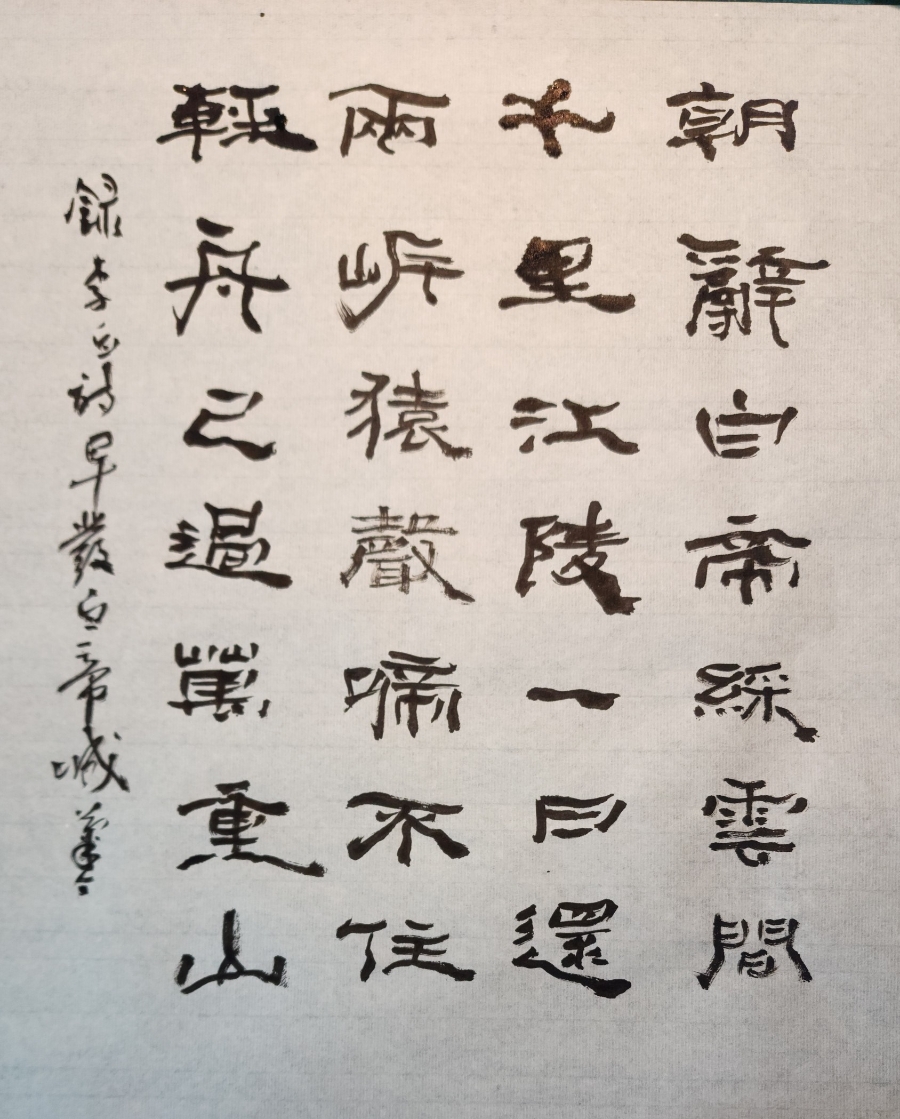 朝辭白帝綵雲間
千里江陵一日還
兩岍猿聲啼不住
輕舟已過萬重山
錄李白詩早發白帝城